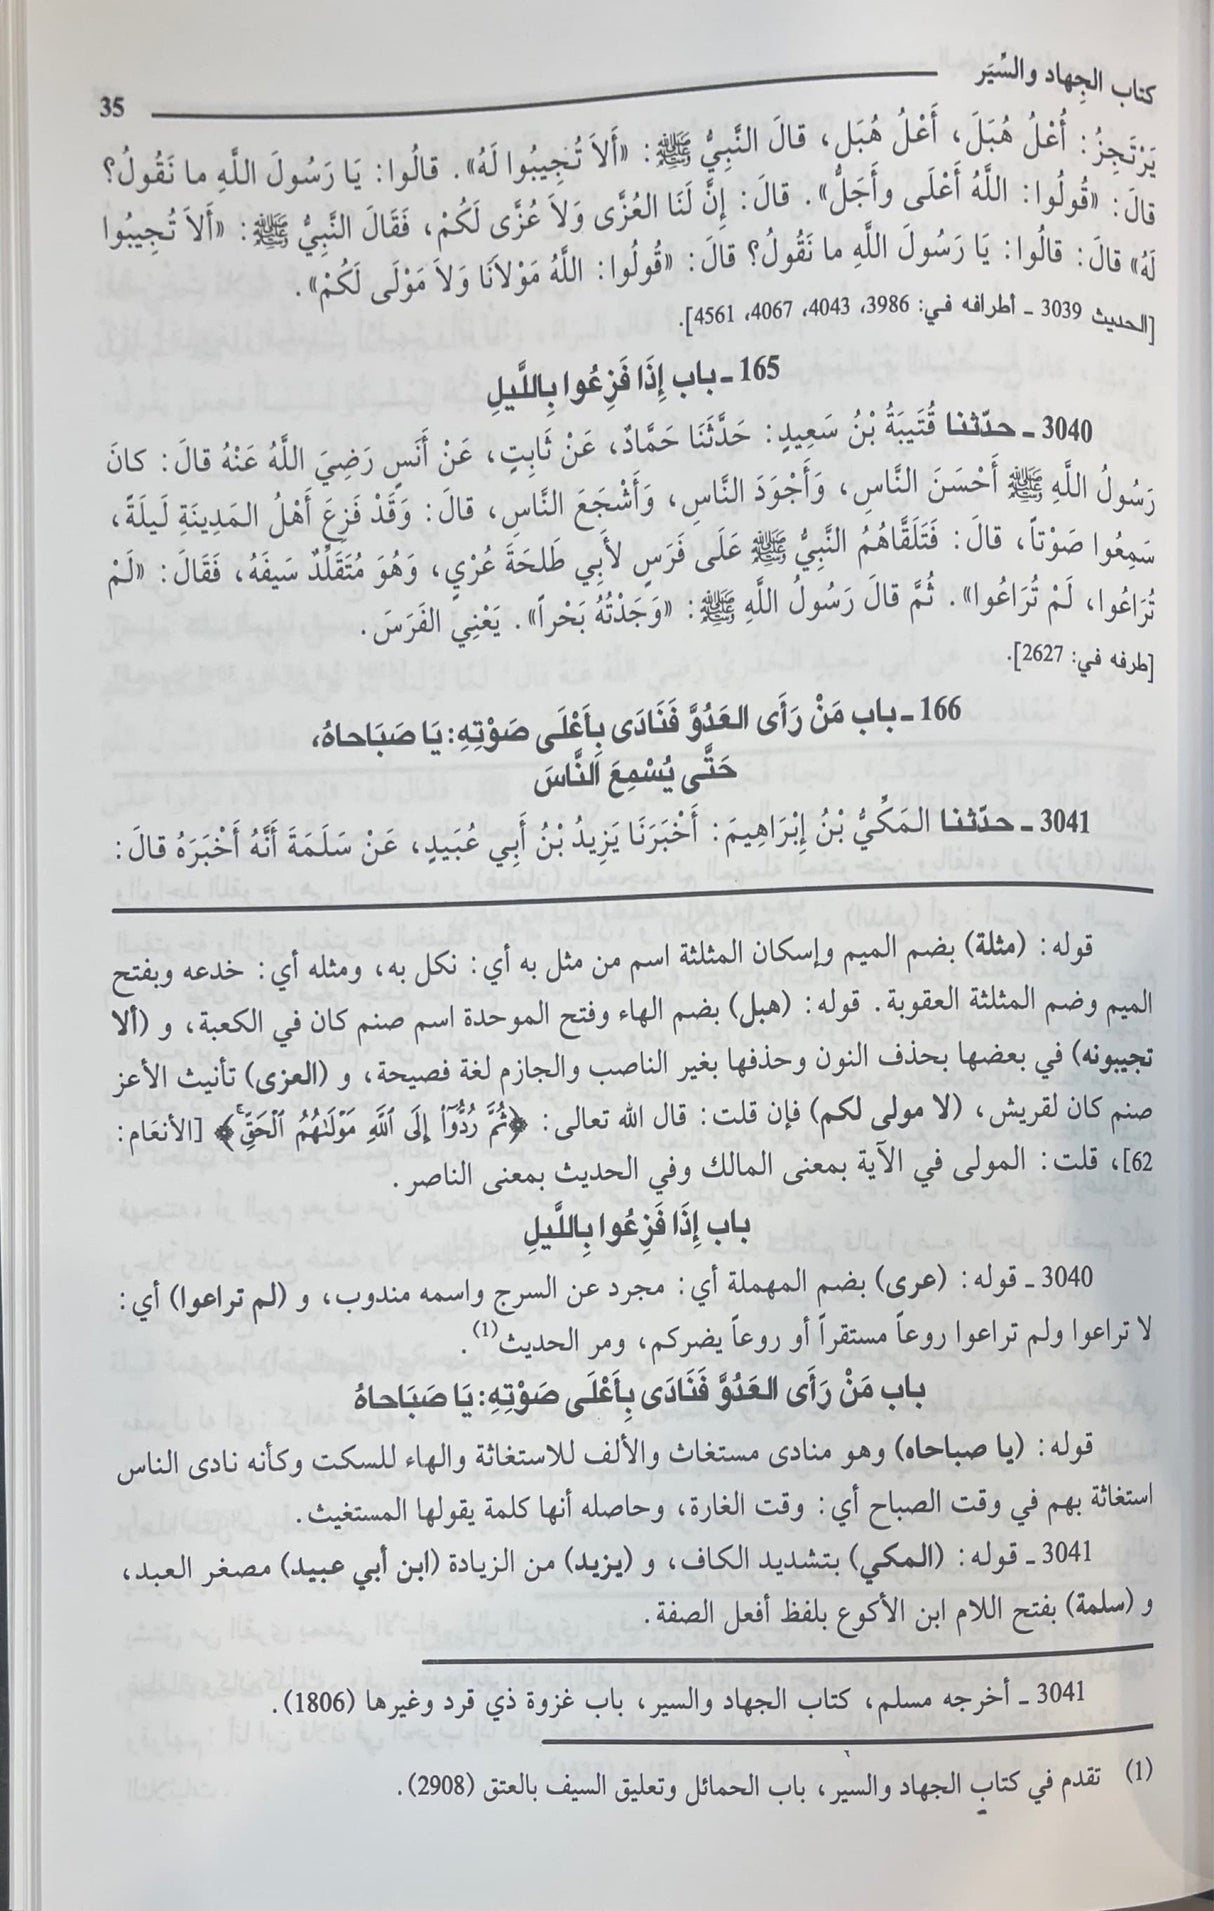 كتاب الجِهاد والسِّيَر
35
يَرْتَجِزُ: أُعْلُ هُبَلَ، أَعْلُ هُبَلِ، قالَ النَّبِيُّ ﷺ: «أَلاَ تُجِيبُوا لَهُ». قالُوا: يَا رَسُولَ اللَّهِ ما نَقُولُ؟
قالَ: «قُولُوا: اللَّهُ أَعْلَى وأَجَلُّ». قالَ: إِنَّ لَنَا العُزَّى وَلاَ عُزَّى لَكُمْ، فَقَالَ النَّبِيُّ ﷺ: «أَلاَ تُجِيبُوا
لَهُ» قالَ: قالُوا: يَا رَسُولَ اللَّهِ ما نَقُولُ؟ قالَ: «قُولُوا: اللَّهُ مَوْلاَنَا وَلاَ مَوْلَى لَكُمْ».
[الحديث 3039 ـ أطرافه في: 3986، 4043، 4067، 4561].
165 ـ باب إِذَا فَزِعُوا بِاللَّيلِ
3040 ـ حدّثنا قُتَيبَةُ بْنُ سَعِيدٍ: حَدَّثَنَا حَمَّادٌ، عَنْ ثَابِتٍ، عَنْ أَنَسٍ رَضِيَ اللَّهُ عَنْهُ قالَ: كانَ
رَسُولُ اللَّهِ ﷺ أَحْسَنَ النَّاسِ، وَأَجْوَدَ النَّاسِ، وَأَشْجَعَ النَّاسِ، قالَ: وَقَدْ فَزِعَ أَهْلُ المَدِينَةِ لَيلَةً،
سَمِعُوا صَوْتاً، قالَ: فَتَلَقَّاهُمُ النَّبِيُّ ﷺ عَلَى فَرَسٍ لأَبِي طَلحَةَ عُرْيٍ، وَهُوَ مُتَقَلِّدٌ سَيفَهُ، فَقَالَ: «لَمْ
تُرَاعُوا، لَمْ تُرَاعُوا». ثُمَّ قالَ رَسُولُ اللَّهِ ﷺ: «وَجَدْتُهُ بَحْراً». يَعْنِي الفَرَسَ.
[طرفه في: 2627].
166 ـ باب مَنْ رَأَى العَدُوَّ فَنَادَى بِأَعْلَى صَوْتِهِ: يَا صَبَاحاهُ،
حَتَّى يُسْمِعَ النَّاسَ
3041 ـ حدّثنا المَكِّيُّ بْنُ إِبْرَاهِيمَ: أَخْبَرَنَا يَزِيدُ بْنُ أَبِي عُبَيدٍ، عَنْ سَلَمَةَ أَنَّهُ أَخْبَرَهُ قالَ:
قوله: (مثلة) بضم الميم وإسكان المثلثة اسم من مثل به أي: نكل به، ومثله أي: خدعه وبفتح
الميم وضم المثلثة العقوبة. قوله: (هبل) بضم الهاء وفتح الموحدة اسم صنم كان في الكعبة، و (ألا
تجيبونه) في بعضها بحذف النون وحذفها بغير الناصب والجازم لغة فصيحة، و (العزى) تأنيث الأعز
صنم كان لقريش، (لا مولى لكم) فإن قلت: قال الله تعالى: ﴿ثُمَّ رُدُّوٓا۟ إِلَى ٱللَّهِ مَوْلَىٰهُمُ ٱلْحَقِّ﴾ [الأنعَام:
62]، قلت: المولى في الآية بمعنى المالك وفي الحديث بمعنى الناصر.
باب إِذَا فَزِعُوا بِاللَّيلِ
3040 ـ قوله: (عرى) بضم المهملة أي: مجرد عن السرج واسمه مندوب، و (لم تراعوا) أي:
لا تراعوا ولم تراعوا روعاً مستقراً أو روعاً يضركم، ومر الحديث(1).
باب مَنْ رَأَى العَدُوَّ فَنَادَى بِأَعْلَى صَوْتِهِ: يَا صَبَاحاهُ
قوله: (يا صباحاه) وهو منادى مستغاث والألف للاستغاثة والهاء للسكت وكأنه نادى الناس
استغاثة بهم في وقت الصباح أي: وقت الغارة، وحاصله أنها كلمة يقولها المستغيث.
3041 ـ قوله: (المكي) بتشديد الكاف، و (يزيد) من الزيادة (ابن أبي عبيد) مصغر العبد،
و (سلمة) بفتح اللام ابن الأكوع بلفظ أفعل الصفة.
3041 ـ أخرجه مسلم، كتاب الجهاد والسير، باب غزوة ذي قرد وغيرها (1806).
(1) تقدم في كتاب الجهاد والسير، باب الحمائل وتعليق السيف بالعتق (2908).